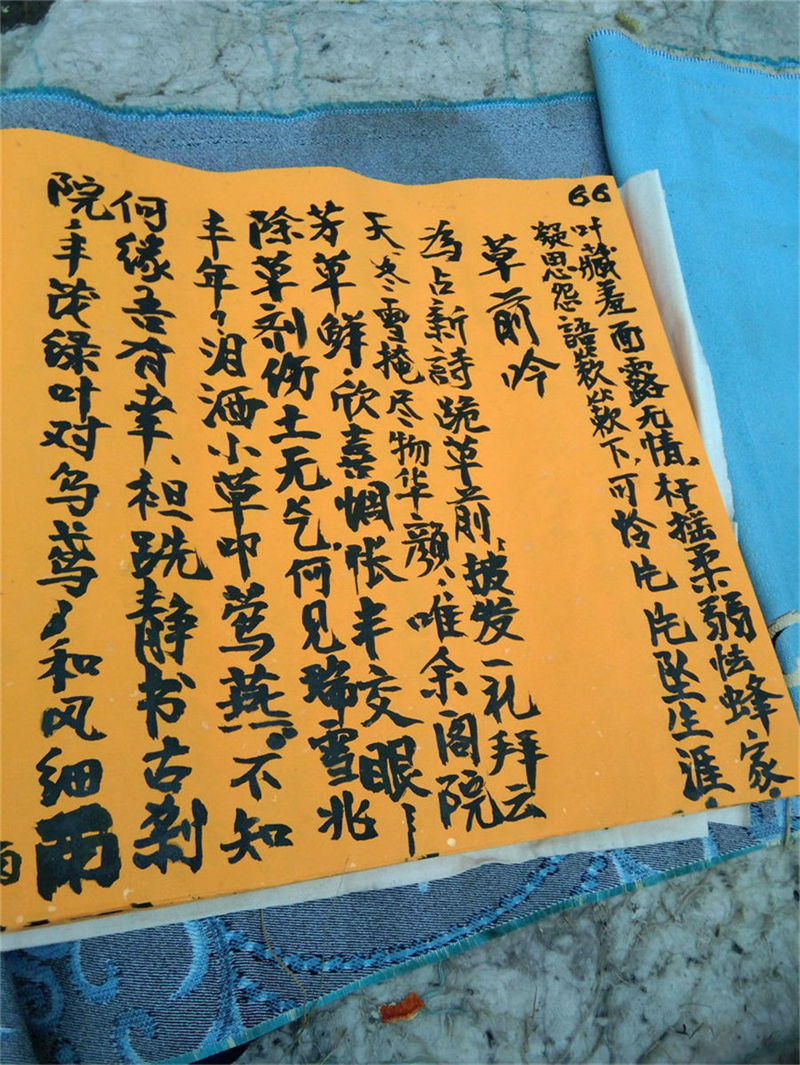 66
叶藏羞面露无情、杆摇柔弱怯蜂家、
凝思怨語欸欸下、可怜片片坠生涯、
草前吟
為占新詩跪草前、披发一礼拜云
天、冬雪掩尽物华顏、唯余阁院
芳草鲜、欣喜惆怅丰交眼、
除草剂伤土无乞、何见瑞雪兆
丰年、泪洒小草叩莺燕、不知
何缘吾有幸、桓跣静书古刹
院、丰茂绿叶对乌鸢、和风细雨